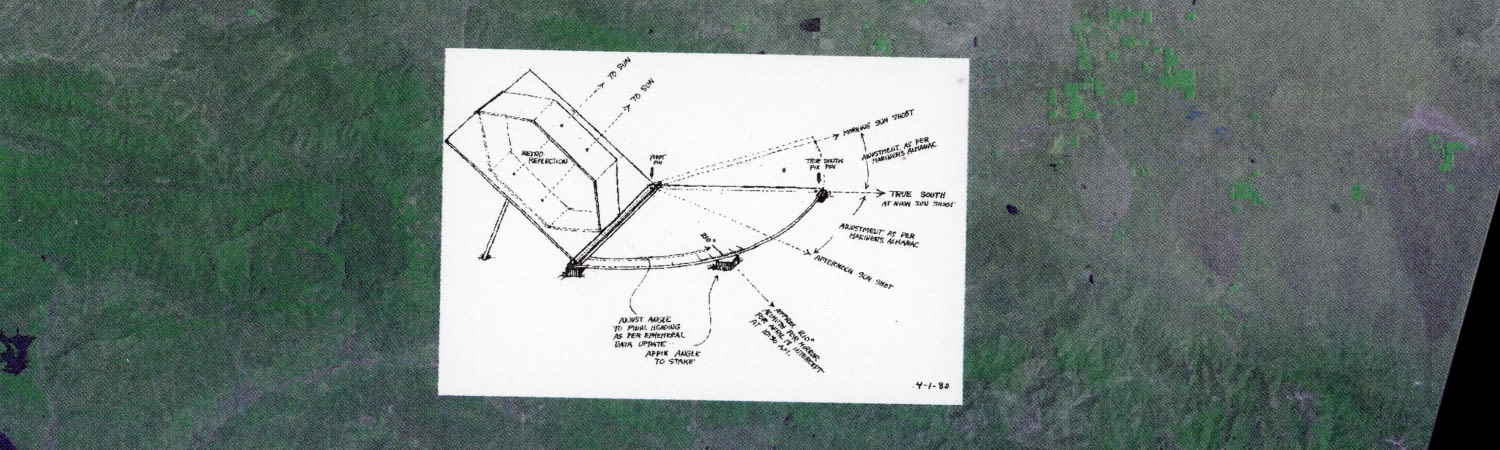 TO SUN
TO SUN
RETRO
REFLECTION
PIVOT
PIN
MORNING SUN SHOOT
ADJUSTMENT AS PER
MARINER'S ALMANAC
TRUE SOUTH
FIX PIN
TRUE SOUTH
AT NOON SUN SHOOT
ADJUSTMENT AS PER
MARINER'S ALMANAC
AFTERNOON SUN SHOT
ADJUST ANGLE
TO FINAL HEADING
AS PER EPHEMERAL
DATA UPDATE
AFFIX ANGLE
TO STAKE
APPROX
AZIMUTH FOR MIRROR
FOR APRIL INTERCEPT
AT 10:30 A.M.
4-1-80